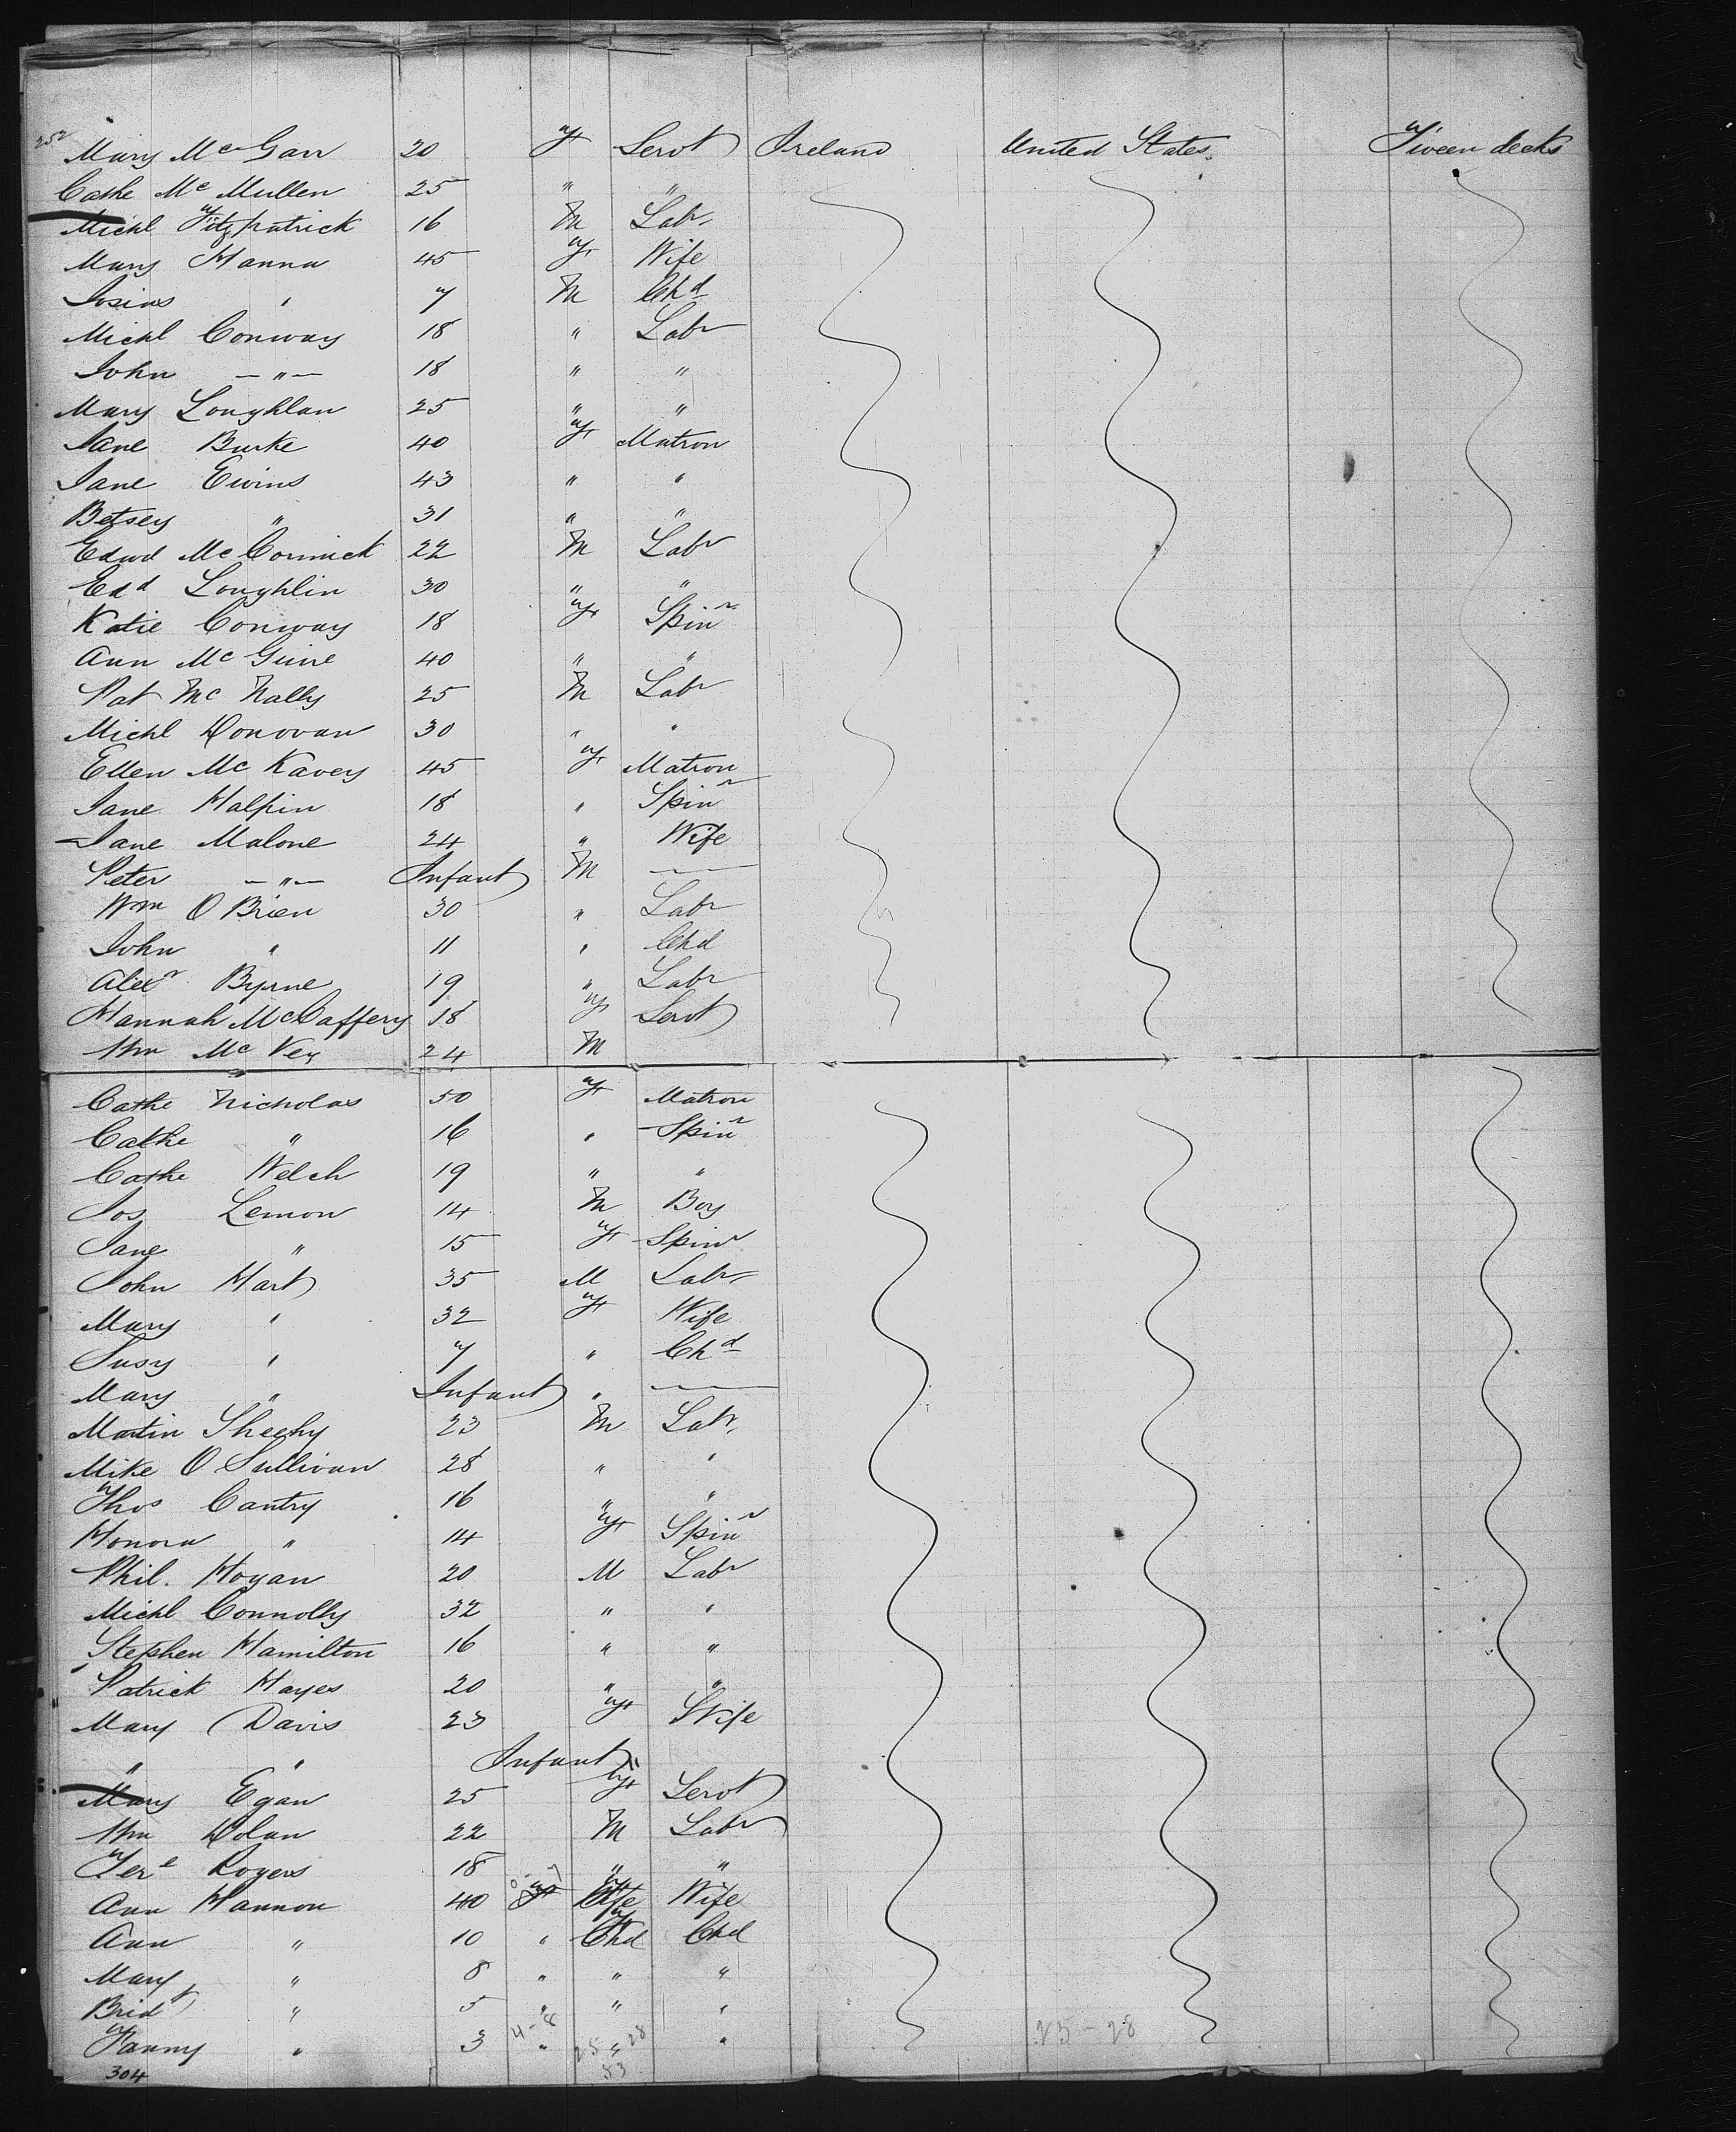 252
Mary McGarr 20 F Servt Ireland United States Tween decks
Cathe McMullen 25 " "
Michl Fitzpatrick 16 M Labr
Mary Hanna 45 F Wife
Josias " 7 M Chd
Michl Conway 18 " Labr
John — " — 18 " "
Mary Loughlan 25 " "
Jane Burke 40 F Matron
Jane Ewins 43 " "
Betsey " 31 " "
Edwd McCormick 22 M Labr
Edd Loughlin 30 " "
Katie Conway 18 F Spinr
Ann McGuire 40 " "
Pat McNally 25 M Labr
Michl Donovan 30 " "
Ellen McKavey 45 F Matron
Jane Halpin 18 " Spinr
Jane Malone 24 " Wife
Peter — " — Infant M —
Wm O Brien 30 " Labr
John " 11 " Chd
Alexr Byrne 19 " Labr
Hannah McCaffery 18 F Servt
Wm McVey 24 M
Cathe Nicholas 50 F Matron
Cathe " 16 " Spinr
Cathe Welch 19 " "
Jos Lemon 14 M Boy
Jane " 15 F Spinr
John Hart 35 M Labr
Mary " 32 F Wife
Susy " 7 " Chd
Mary " Infant " —
Martin Sheehy 23 M Labr
Mike O Sullivan 28 " "
Thos Cantry 16 " "
Honora " 14 F Spinr
Phil. Hogan 20 M Labr
Michl Connolly 32 " "
Stephen Hamilton 16 " "
Patrick Hayes 20 " "
Mary Davis 23 F Wife
" " Infant "
Mary Egan 25 F Servt
Wm Dolan 22 M Labr
Tere Rogers 18 " "
Ann Hannon 40 F Wife
Ann " 10 " Chd Chd
Mary " 8 " " "
Bridt " 5 " " "
Fanny " 3 " "
4-8 25 28 53 25-28
304